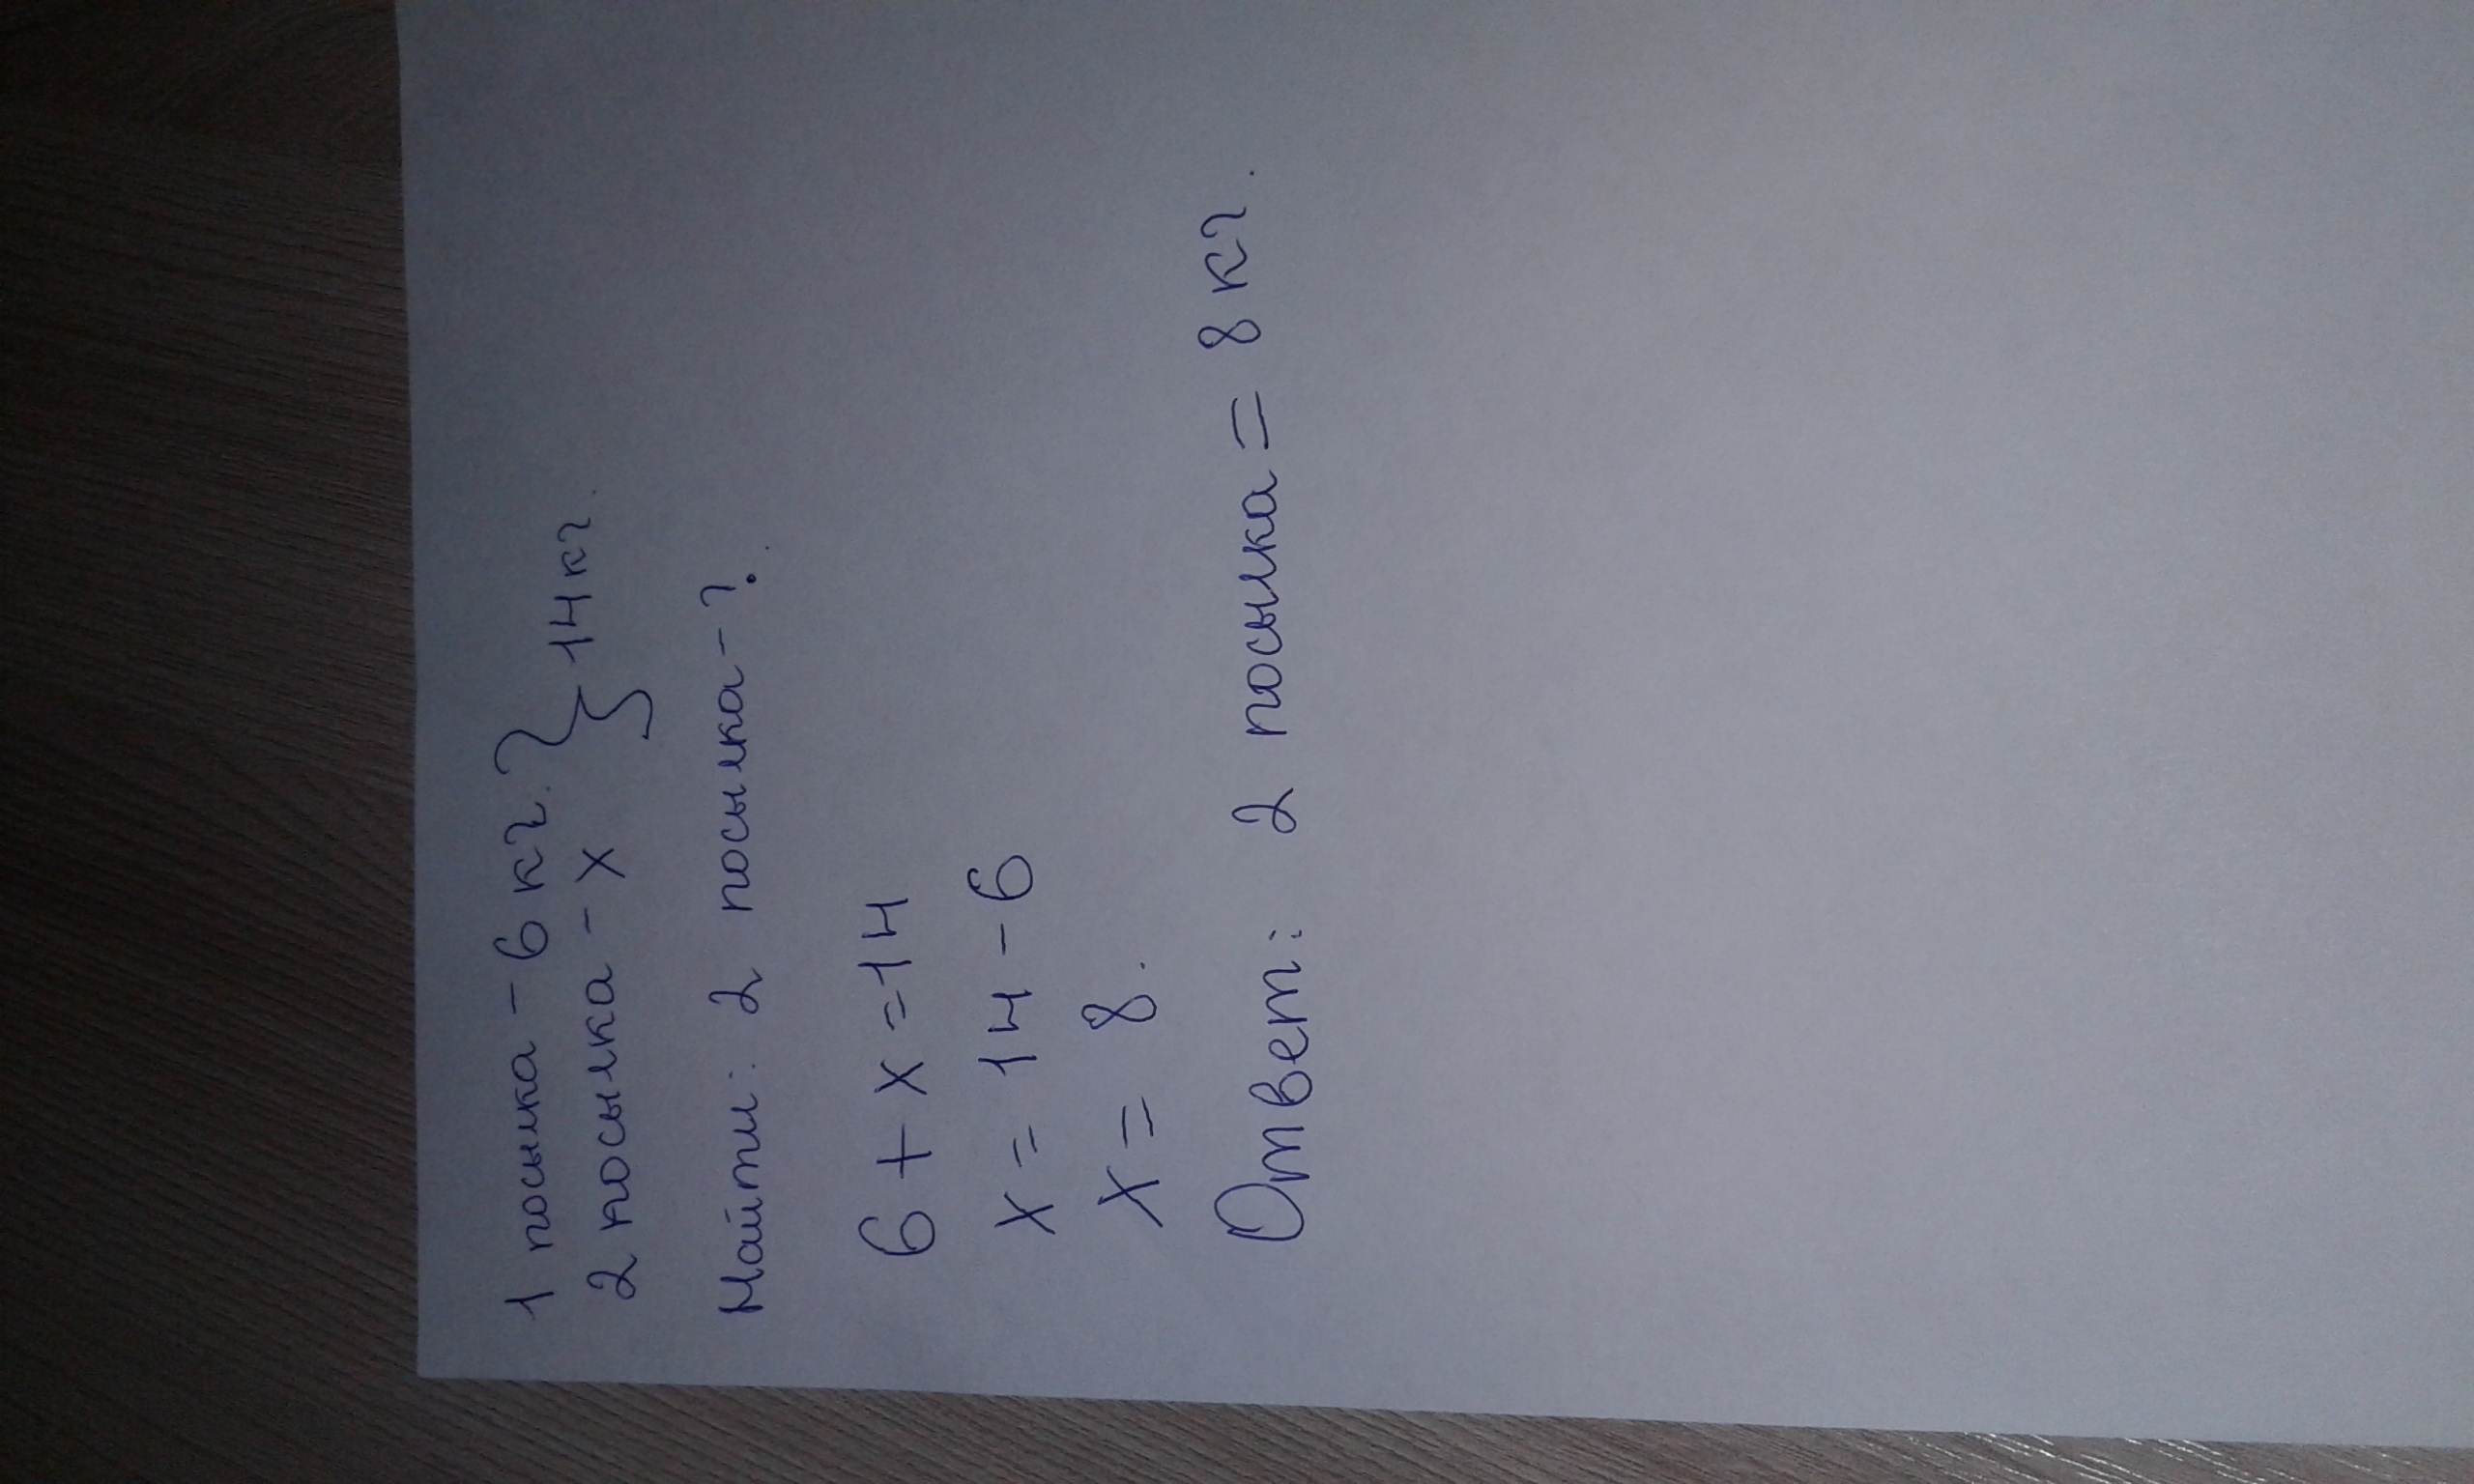 1 посылка - 6 кг. } 14 кг.
2 посылка - х
Найти: 2 посылка - ?.
6 + х = 14
х = 14 - 6
х = 8.
Ответ: 2 посылка = 8 кг.